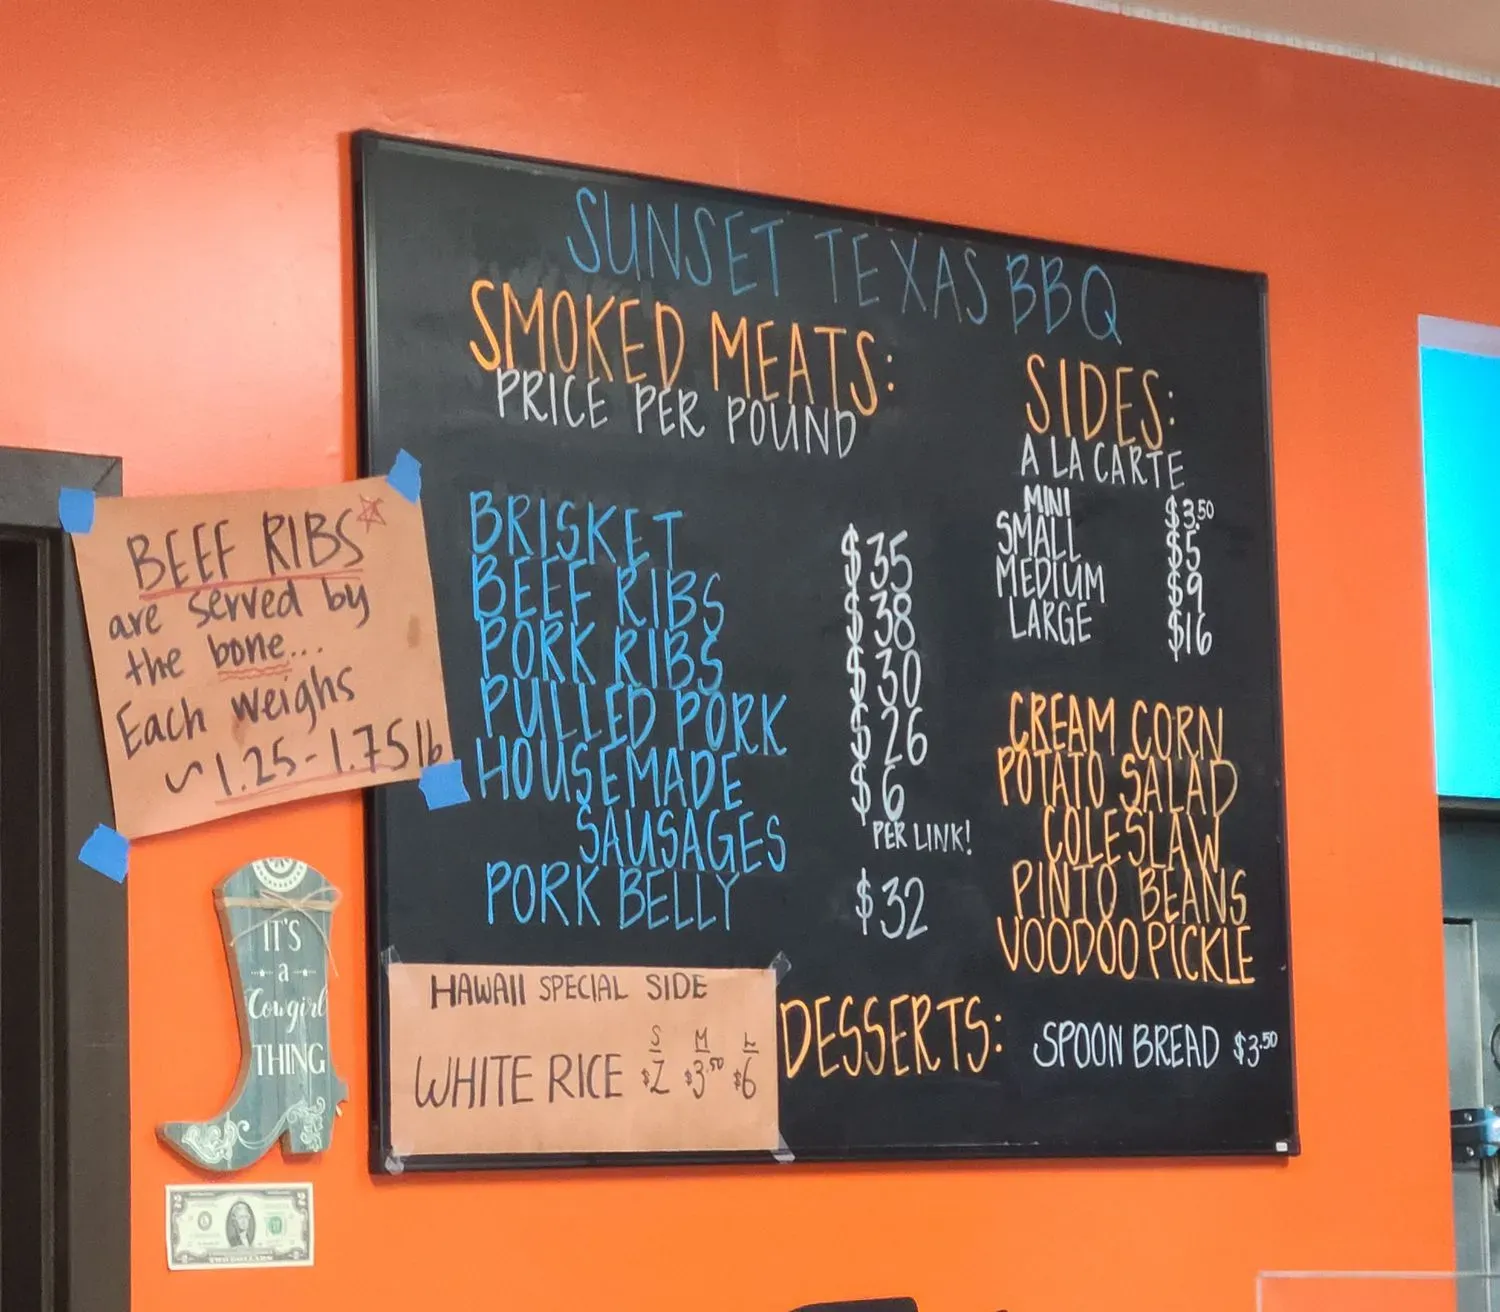 SUNSET TEXAS BBQ
SMOKED MEATS:
PRICE PER POUND
BRISKET $35
BEEF RIBS $38
PORK RIBS $30
PULLED PORK $26
HOUSEMADE $6
SAUSAGES PER LINK!
PORK BELLY $32
SIDES:
A LA CARTE
MINI $3.50
SMALL $5
MEDIUM $9
LARGE $16
CREAM CORN
POTATO SALAD
COLESLAW
PINTO BEANS
VOODOO PICKLE
DESSERTS: SPOON BREAD $3.50
HAWAII SPECIAL SIDE
S M L
WHITE RICE $2 $3.50 $6
BEEF RIBS
are served by
the bone...
Each weighs
~1.25-1.75 lb
IT'S
a
Cowgirl
THING
2 2
TWO DOLLARS